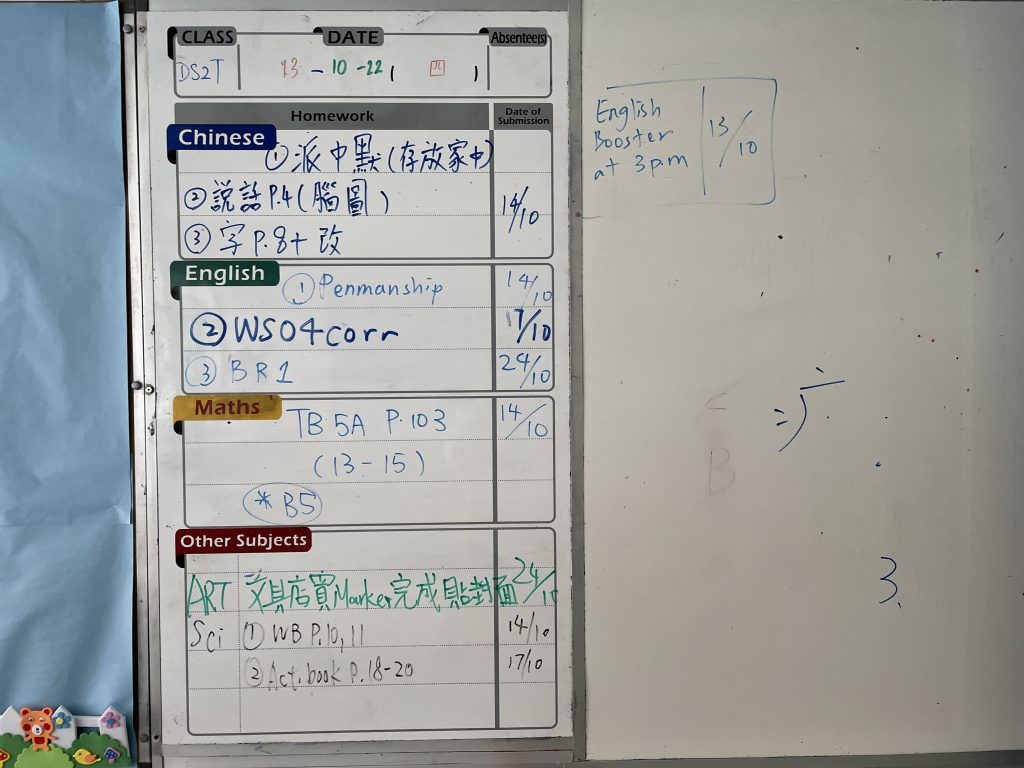 CLASS DATE Absentee(s)
DS2T 13-10-22 (四)
Homework Date of Submission
Chinese
① 派中默(存放家中)
② 説話 P.4 (腦圖) 14/10
③ 字 P.8+改
English
① Penmanship 14/10
② WS04corr 17/10
③ BR1 24/10
Maths
TB 5A P.103 14/10
(13-15)
* B5
Other Subjects
ART 文具店買Marker完成貼封面 24/10
Sci ① WB P.10,11 14/10
② Act.book P.18-20 17/10
English
Booster 13/10
at 3pm
B
3.